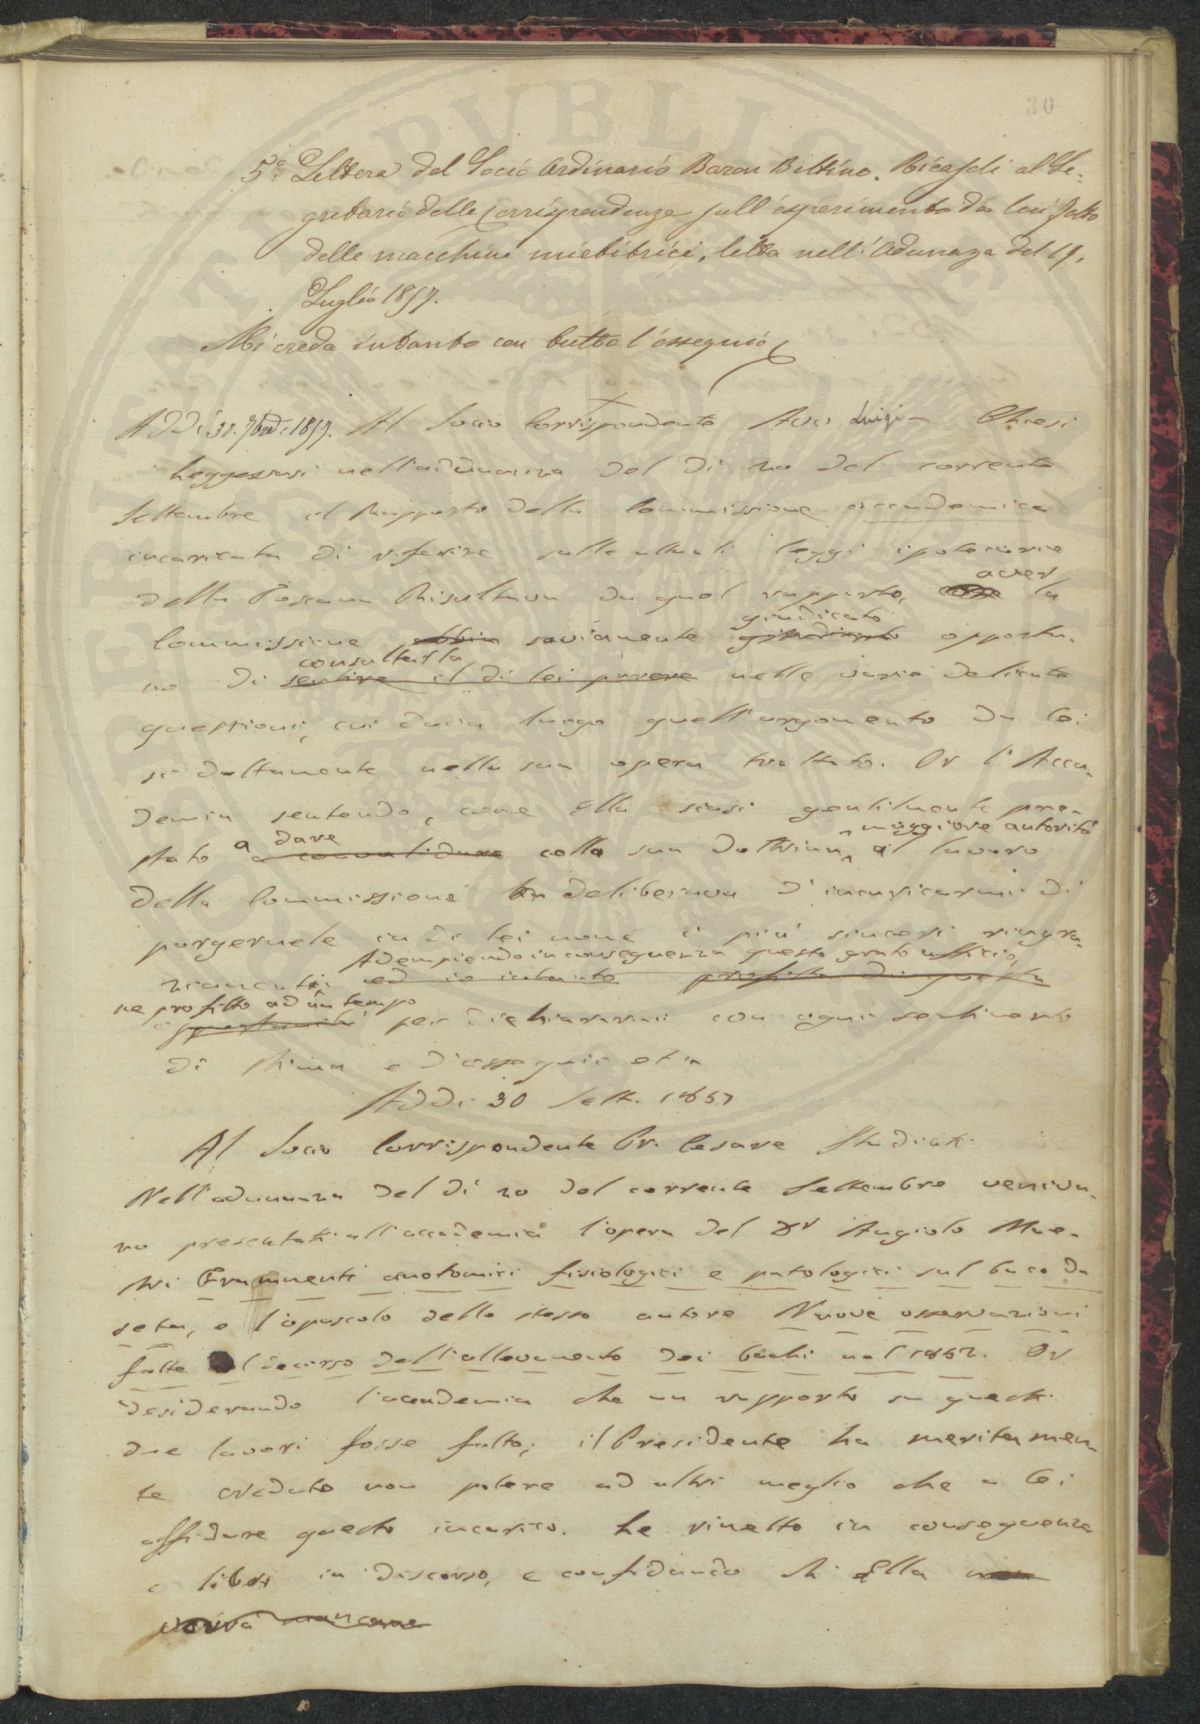 30
5.° Lettera del Socio Ordinario Baron Bettino Ricasoli al Se-
gretario delle Corrispondenze sull'esperimento da lui fatto
delle macchine mietitrici, letta nell'Adunaza del 19.
Luglio 1857.
Mi creda intanto con tutto l'ossequio
Addì 30. 7bre 1857. Al Socio Corrispondente Avv Luigi Chiesi
Leggevasi nell'adunanza del dì 20 del corrente
Settembre il Rapporto della Commissione accademica
incaricata di riferire sulle attuali leggi ipotecarie
della Toscana Risultava da quel rapporto, aver la
Commissione abbia saviamente giudicato opportu-
no di consultarla sentire il di lei parere nelle varie delicate
questioni, cui dava luogo quell'argomento da lei
sì dottamente nella sua opera trattato. Or l'Acca-
demia sentendo, come Ella siasi gentilmente pre-
stato a dare colla sua dottrina maggiore autorità al lavoro
della Commissione deliberava d'incaricarmi di
porgernele in di lei nome i più sinceri ringra-
ziamenti Adempiendo in conseguenza questo grato ufficio, ed io intanto profitto di questa
ne profitto ad un tempo opportunità per dichiararmi con ogni sentimento
di stima e d'ossequio
Addì 30 Sett. 1857
Al Socio Corrispondente Cesare Studiati
Nell'adunanza del dì 20 del corrente Settembre veniva-
no presentati all'accademia l'opera del Dr Angiolo Mae-
stri Frammenti anatomici fisiologici e patologici sul baco da
seta, e l'opuscolo dello stesso autore Nuove osservazioni
fatte nel decorso dell'allevamento dei bachi nel 1857. Or
desiderando l'accademia che un rapporto su questi
due lavori fosse fatto, il Presidente ha meritamen-
te creduto non potere ad altri meglio che a Lei
affidare questo incarico. Le rimetto in conseguenza
i libri in discorso, e confidando che Ella non
vorrà mancare